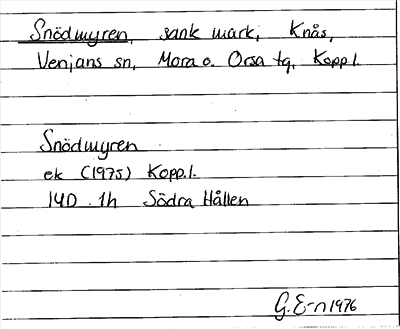 Snödmyren, sank mark, Knås,
Venjans sn, Mora o. Orsa tg, Kopp.l.
Snödmyren
ek (1975) Kopp.l.
14D 1h Södra Hållen
G.E-n 1976